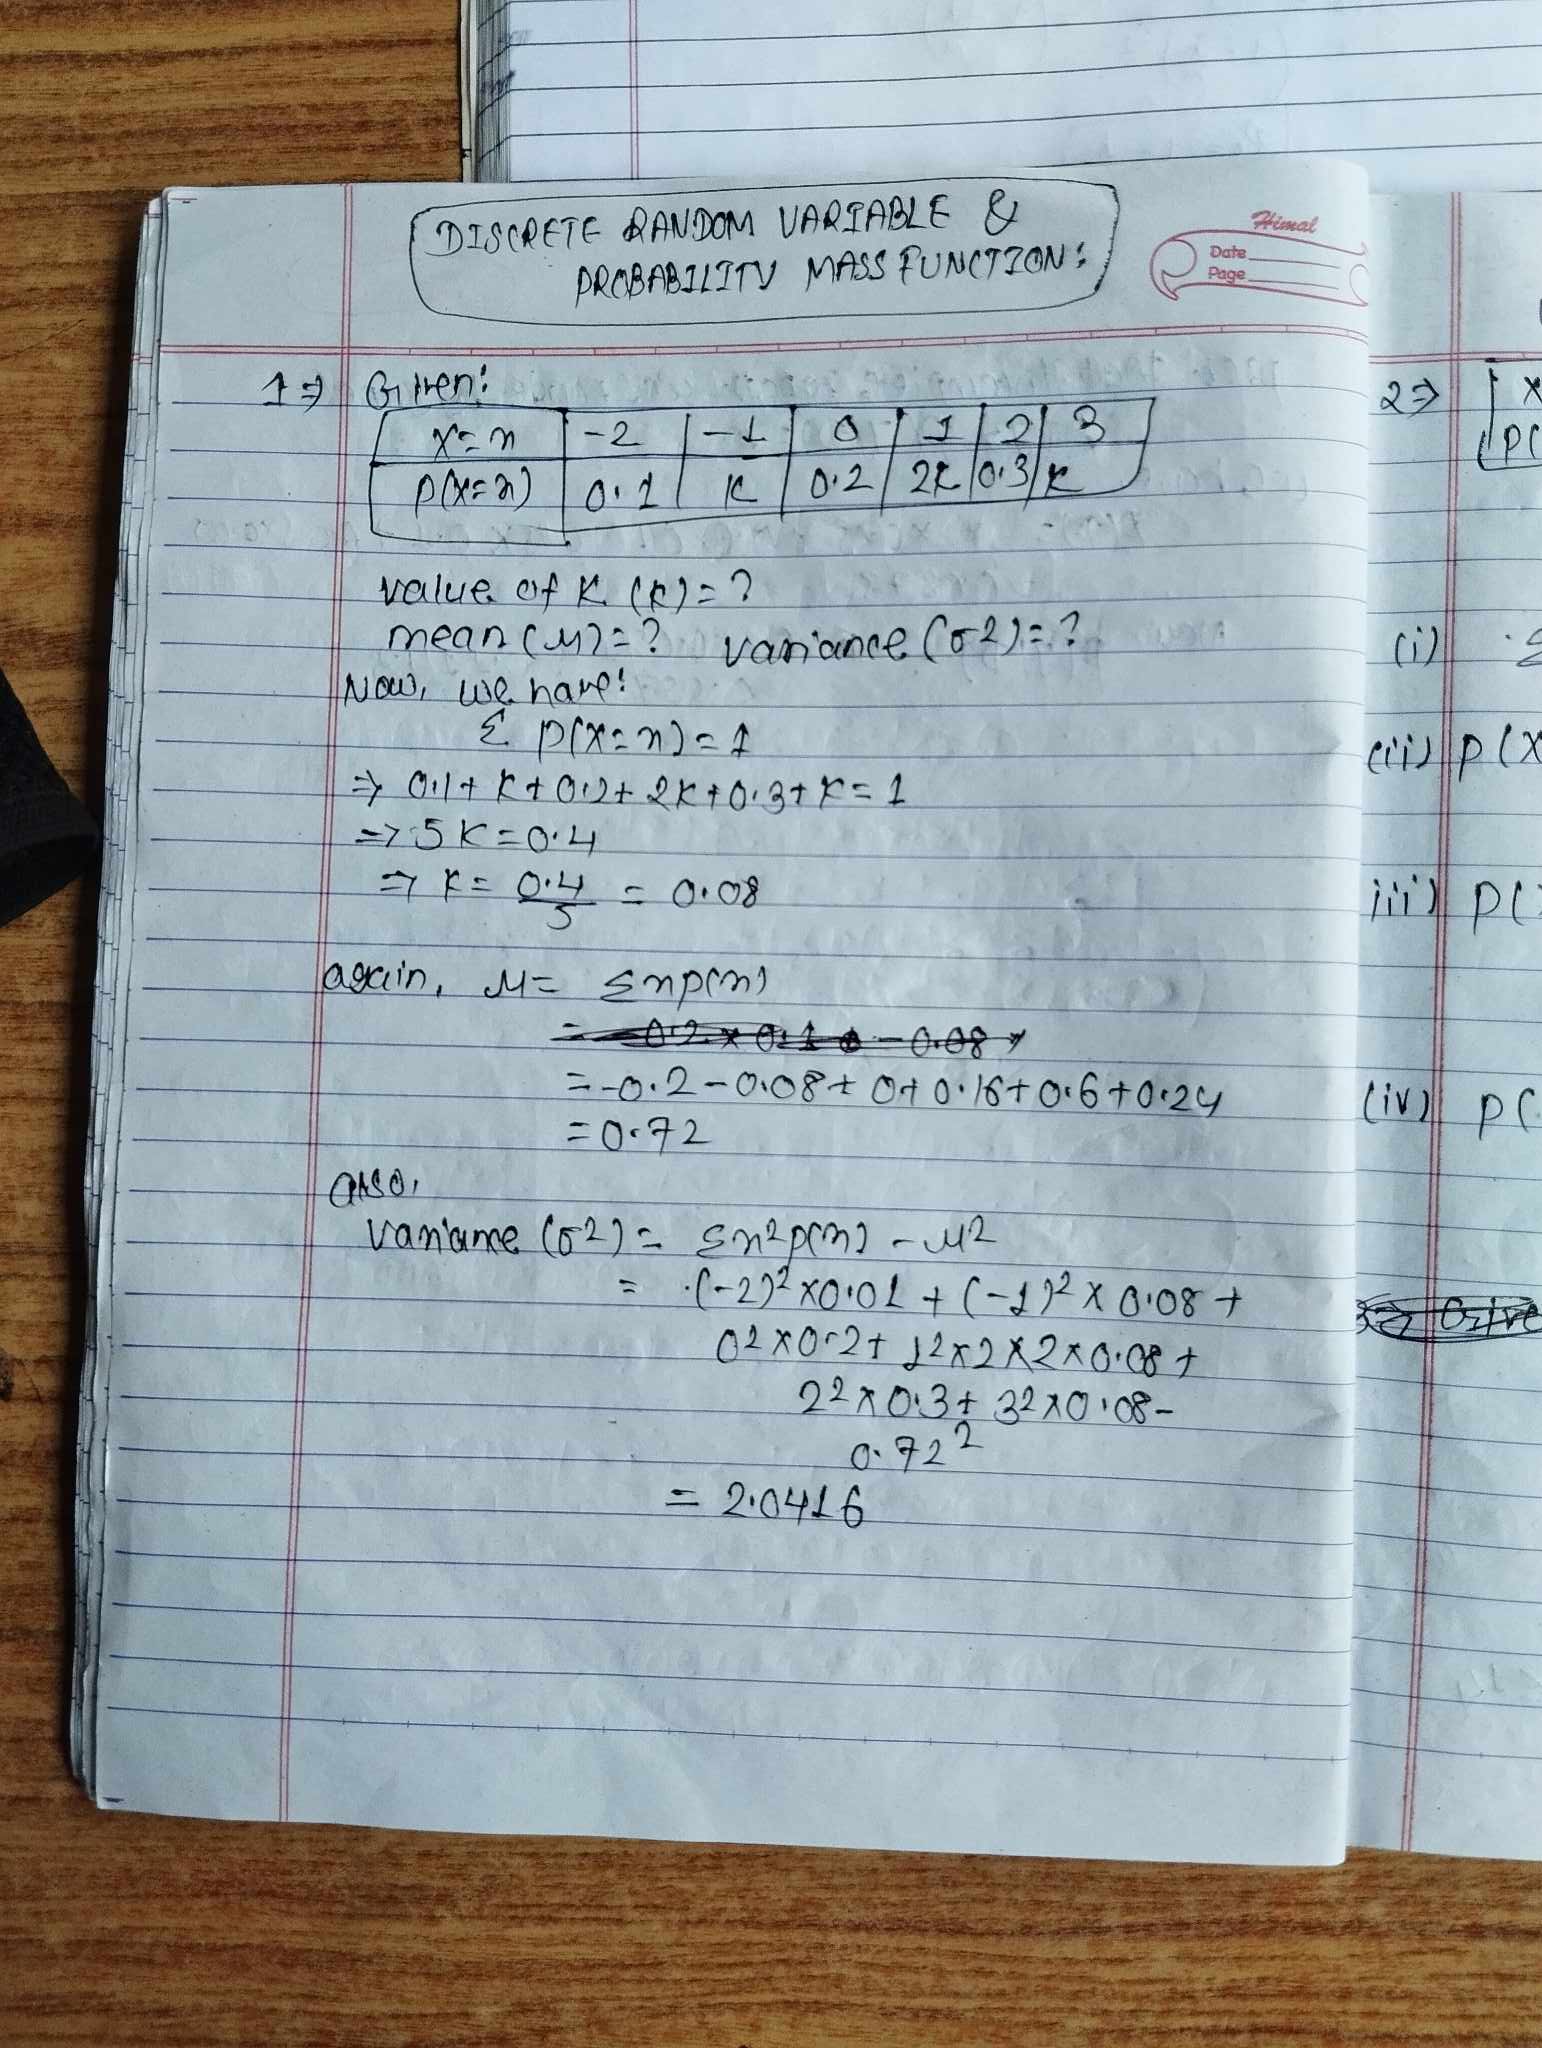 DISCRETE RANDOM VARIABLE &
PROBABILITY MASS FUNCTION:
Himal
Date
Page
1⇒ Given:
X=x | -2 | -1 | 0 | 1 | 2 | 3
P(X=x) | 0.1 | K | 0.2 | 2K | 0.3 | K
value of K (K) = ?
mean (μ) = ? variance (σ2) = ?
Now, we have:
Σ P(X=x) = 1
⇒ 0.1 + K + 0.2 + 2K + 0.3 + K = 1
⇒ 5K = 0.4
⇒ K = 0.4/5 = 0.08
again, μ = Σxp(x)
= -0.2 - 0.08 + 0 + 0.16 + 0.6 + 0.24
= 0.72
also,
variance (σ2) = Σx²p(x) - μ2
= (-2)² × 0.01 + (-1)² × 0.08 +
0² × 0.2 + 1² × 2 × 2 × 0.08 +
2² × 0.3 + 3² × 0.08 -
0.72²
= 2.0416
2⇒ X
P(
(i)
(ii) P(X
iii) P(
(iv) P(
3⇒ Give